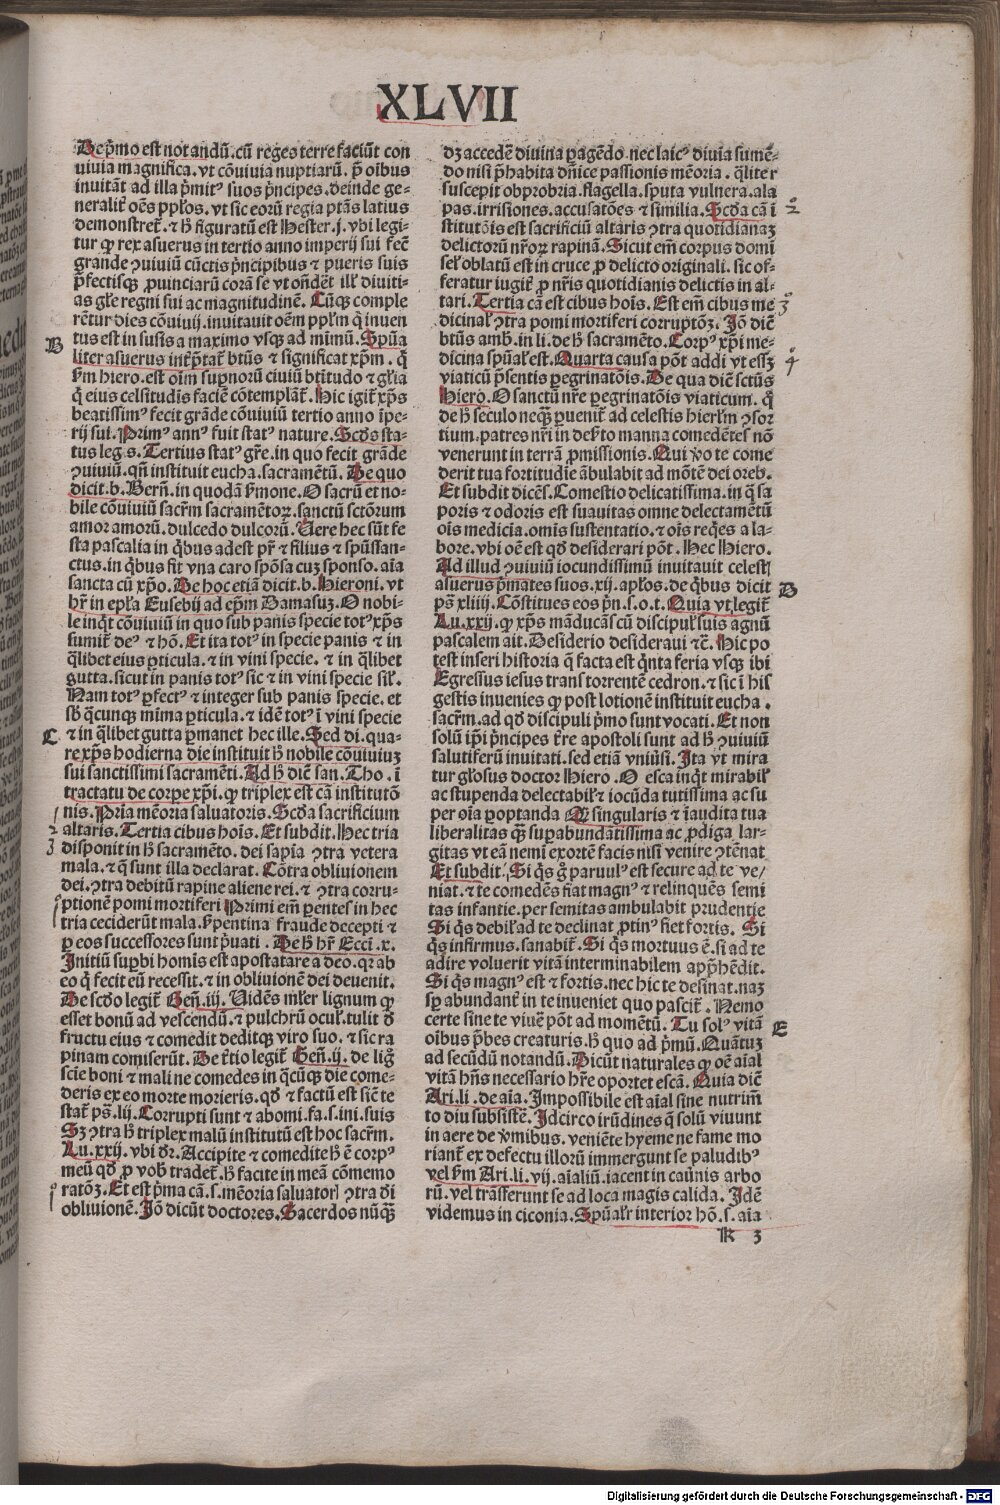 XLVII
De p̄mo est notandū. cū reges terre faciūt con
uiuia magnifica. vt cōuiuia nuptiarū. p̄ oībus
inuitāt ad illa p̄mitꝰ suos p̄ncipes. deinde ge-
neralit̄ oēs pp̄los. vt sic eorū regia ptās latius
demonstret̄. ⁊ ħ figuratū est Hester. j. vbi legi-
tur ꝙ rex asuerus in tertio anno imperij sui fec̄
grande ꝯuiuiū cūctis p̄ncipibus ⁊ pueris suis
p̄fectisqꝫ ꝓuinciarū corā se vt ondēt̄ illr̄ diuiti-
as gl̄e regni sui ac magnitudinē. Cūqꝫ comple
rētur dies cōuiuij. inuitauit oēm pp̄lm q̄ inuen
tus est in susis a maximo vsqꝫ ad mimū. Spūa
liter asuerus intp̄tat̄ btūs ⁊ significat xp̄m. q̄
ẜm hiero. est oīm supnorū ciuiū btītudo ⁊ gl̄ia
q̄ eius celsitudīs faciē cōtemplāt̄. Hic igit̄ xp̄s
beatissimꝰ fecit grāde cōuiuiū tertio anno īpe-
rij sui. Primꝰ annꝰ fuit statꝰ nature. Scd̄s sta-
tus legꝭ. Tertius statꝰ gr̄e. in quo fecit grāde
ꝯuiuiū. qn̄ instituit eucha. sacramētū. De quo
dicit. b. Bern̄. in quodā ẜmone. O sacrū et no-
bile cōuiuiū sacr̄m sacramētoꝝ. sanctū sctōrum
amor amorū. dulcedo dulcorū. Uere hec sūt fe
sta pascalia in q̄bus adest pr̄ ⁊ filius ⁊ spūssan-
ctus. in q̄bus fit vna caro spōsa cuꝫ sponso. aīa
sancta cū xp̄o. De hoc etiā dicit. b. Hieroni. vt
hr̄ in epl̄a Eusebij ad ep̄m Damasuꝫ. O nobi-
le inq̄t cōuiuiū in quo sub panis specie totꝰ xp̄s
sumit̄ deꝰ ⁊ hō. Et ita totꝰ in specie panis ⁊ in
q̄libet eius ꝑticula. ⁊ in vini specie. ⁊ in q̄libet
gutta. sicut in panis totꝰ sic ⁊ in vini specie sil̄r.
Nam totꝰ ꝑfectꝰ ⁊ integer sub panis specie. et
sb̄ q̄cunqꝫ mima ꝑticula. ⁊ idē totꝰ ī vini specie
⁊ in q̄libet gutta ꝑmanet hec ille. Sed di. qua-
re xp̄s hodierna die instituit ħ nobile cōuiuiuꝫ
sui sanctissimi sacramēti. Ad ħ diē san. Tho. ī
tractatu de corꝑe xp̄i. ꝙ triplex est cā institutō
nis. Prīa mēoria saluatoris. Scd̄a sacrificium
altaris. Tertia cibus hoīs. Et subdit. Hec tria
disponit in ħ sacramēto. dei sapīa ꝯtra vetera
mala. ⁊ q̄ sunt illa declarat. Cōtra obliuionem
dei. ꝯtra debitū rapine aliene rei. ⁊ ꝯtra corru-
ptionē pomi mortiferi Primi em̄ ꝑentes in hec
tria ceciderūt mala. ẜpentina fraude decepti ⁊
ꝑ eos successores sunt p̄uati. De ħ hr̄ Ecci. x.
Initiū supbi homis est apostatare a deo. qr ab
eo q̄ fecit eū recessit. ⁊ in obliuionē dei deuenit.
De scd̄o legit̄ Geñ. iij. Uidēs ml̄er lignum ꝙ
esset bonū ad vescendū. ⁊ pulchrū ocul̄. tulit d̄
fructu eius ⁊ comedit deditqꝫ viro suo. ⁊ sic ra
pinam comiserūt. De t̄tio legit̄ Geñ. ij. de lig̊
scīe boni ⁊ mali ne comedes in q̄cūqꝫ die come-
deris ex eo morte morieris. qd̄ ⁊ factū est siē te
stat̄ ps̄. lij. Corrupti sunt ⁊ abomi. fa. s. ini. suis
Sꝫ ꝯtra ħ triplex malū institutū est hoc sacr̄m.
Lu. xxij. vbi dr̄. Accipite ⁊ comedite ħ ē corpꝰ
meū qd̄ ꝓ vob̄ tradet̄. ħ facite in meā cōmemo
ratōꝫ. Et est p̄ma cā. s. mēoria saluatorꝭ ꝯtra di
obliuionē. Iō dicūt doctores. Sacerdos nūq̄
dꝫ accedē diuina ꝑagēdo. nec laicꝰ diuīa sumē-
do nisi p̄habita dn̄ice passionis mēoria. q̄liter
suscepit obprobria. flagella. sputa vulnera. ala
pas. irrisiones. accusatōes ⁊ similia. Scd̄a cā ī
stitutōis est sacrificiū altaris ꝯtra quotidianaꝫ
delictorū nr̄oꝝ rapinā. Sicut em̄ corpus domī
sel̄ oblatū est in cruce ꝓ delicto originali. sic of-
feratur iugit̄ ꝓ nr̄is quotidianis delictis in al-
tari. Tertia cā est cibus hoīs. Est em̄ cibus me
dicinal̄ ꝯtra pomi mortiferi corruptōꝫ. Iō diē
btūs amb. in li. de ħ sacramēto. Corpꝰ xp̄i me-
dicina spūal̄ est. Quarta causa pōt addi vt essꝫ
viaticū p̄sentis ꝑegrinatōis. De qua diē sctūs
Hiero. O sanctū nr̄e ꝑegrinatōis viaticum. q̄
de ħ seculo neqꝫ ꝑuenit̄ ad celestis hierl̄m ꝯsor
tium. patres nr̄i in deẜto manna comedētes nō
venerunt in terrā ꝓmissionis. Qui v̊o te come
derit tua fortitudīe ābulabit ad mōtē dei oreb.
Et subdit dicēs. Comestio delicatissima. in q̄ sa
poris ⁊ odoris est suauitas omne delectamētū
oīs medicīa. omis sustentatio. ⁊ oīs reqes a la-
bore. vbi oē est qd̄ desiderari pōt. Hec Hiero.
Ad illud ꝯuiuiū iocundissimū inuitauit celestꝭ
asuerus p̄mates suos. xij. apl̄os. de q̄bus dicit
ps̄ xliiij. Cōstitues eos pn̄. s. o. t. Quia vt legit̄
Lu. xxij. ꝙ xp̄s māducās cū discipul̄ suis agnū
pascalem ait. Desiderio desideraui ⁊c̄. Hic po
test inseri historia q̄ facta est q̄nta feria vsqꝫ ibi
Egressus iesus trans torrentē cedron. ⁊ sic ī his
gestis inuenies ꝙ post lotionē instituit eucha.
sacr̄m. ad qd̄ discipuli p̄mo sunt vocati. Et non
solū ip̄i p̄ncipes t̄re apostoli sunt ad ħ ꝯuiuiū
salutiferū inuitati. sed etiā vniūsi. Ita vt mira
tur gl̄osus doctor Hiero. O esca inq̄t mirabil̄
ac stupenda delectabil̄ ⁊ iocūda tutissima ac su
per oīa ꝑoptanda Q̄ singularis ⁊ īaudita tua
liberalitas q̄ꝫ supabundātissima ac ꝓdiga lar-
gitas vt eā nemī exortē facis nisi venire ꝯtēnat
Et subdit. Si q̄s g̊ paruulꝰ est secure ad te ve/
niat. ⁊ te comedēs fiat magnꝰ ⁊ relinquēs semi
tas infantie. per semitas ambulabit prudentie
Si q̄s debil̄ ad te declinat ꝓtinꝰ fiet fortis. Si
q̄s infirmus. sanabit̄. Si q̄s mortuus ē. si ad te
adire voluerit vitā interminabilem apꝑhēdit.
Si q̄s magnꝰ est ⁊ fortis. nec hic te desinat. naꝫ
sꝑ abundant̄ in te inueniet quo pascit̄. Nemo
certe sine te viuē pōt ad momētū. Tu solꝰ vitā
oībus p̄bes creaturis. ħ quo ad p̄mū. Quātuꝫ
ad secūdū notandū. Dicūt naturales ꝙ oē aīal
vitā hn̄s necessario hr̄e oportet escā. Quia diē
Ari. li. de aīa. Impossibile est aīal sine nutrim̄
to diu subsistē. Idcirco irūdines q̄ solū viuunt
in aere de v̄mibus. veniēte hyeme ne fame mo
riant̄ ex defectu illorū immergunt se paludibꝰ
vel ẜm Ari. li. vij. aīaliū. iacent in cau̅nis arbo
rū. vel trāsferunt se ad loca magis calida. Idē
videmus in ciconia. Spūal̄r interior hō. s. aīa
K 3
B
C
1
2
3
1
1
2
3
4
D
E
Digitalisierung gefördert durch die Deutsche Forschungsgemeinschaft - DFG